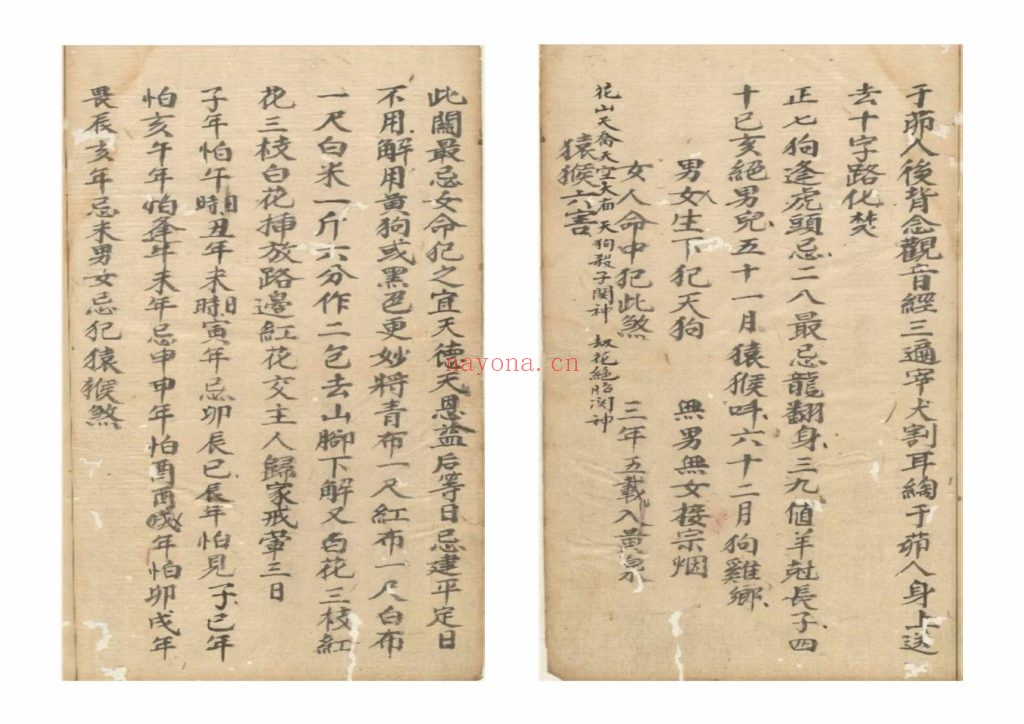 于茆人後背念觀音經三遍宰犬割耳綯于茆人身上送
去十字路化焚
正七狗逢虎頭忌二八最忌龍翻身三九值羊尅長子四
十巳亥絕男兒五十一月猿猴呌六十二月狗雞鄉
男女生下犯天狗 無男無女接宗烟
女人命中犯此煞 三年五載入黃泉
花山天喬天空大有天狗殺子関神 刼花絕胎関神
猿猴六害
此關最忌女命犯之宜天德天恩益后等日忌建平定日
不用解用黃狗或黑邑更妙將青布一尺紅布一尺白布
一尺白米一斤六分作二包去山腳下解又白花三枝紅
花三枝白花揷放路邊紅花交主人歸家戒葷三日
子年怕午日時丑年未日時寅年忌卯辰巳辰年怕見子巳年
怕亥午年怕逢年未年忌申申年怕酉酉戌年怕卯戌年
畏辰亥年忌未男女忌犯猿猴煞
nayona.cn